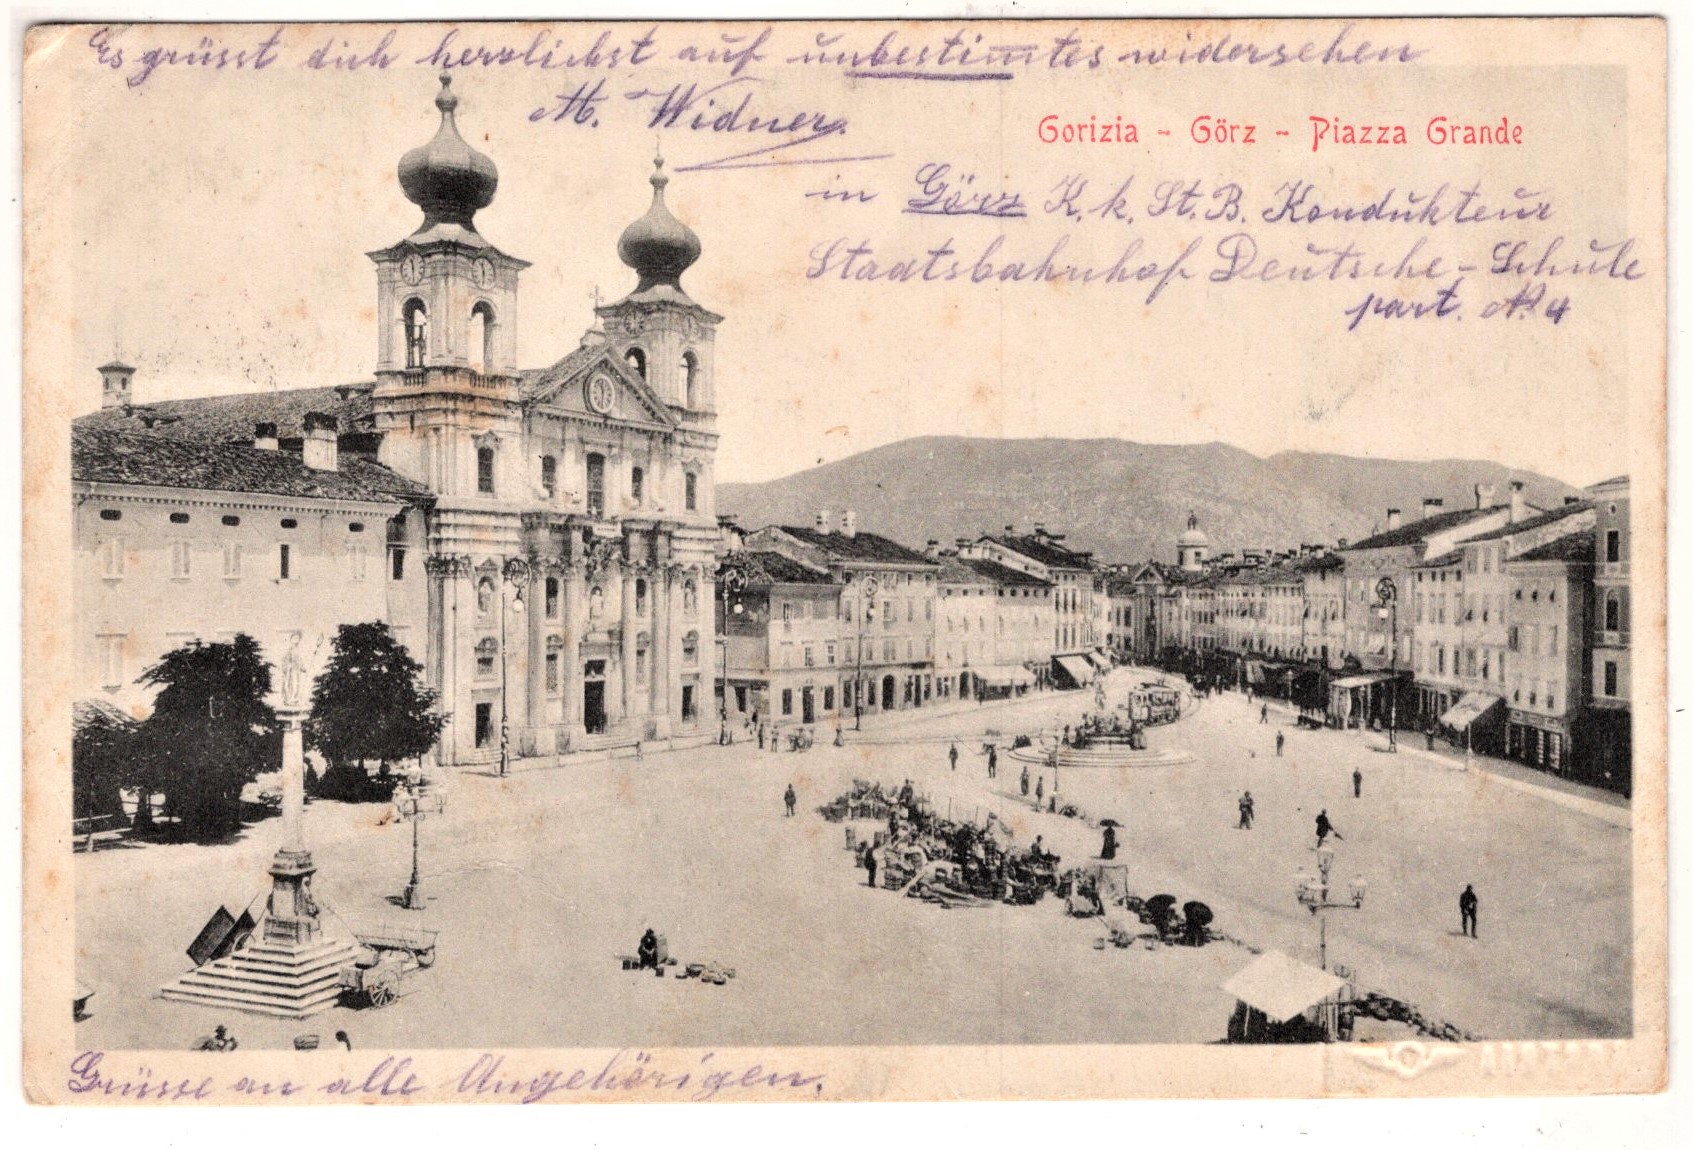 Es grüsst dich herzlichst auf unbestimtes widersehen
M. Widner.
Gorizia - Görz - Piazza Grande
in Görz K. k. St. B. Kondukteur
Staatsbahnhof Deutsche - Schule
part. No. 4
Grüsse an alle Angehörigen.